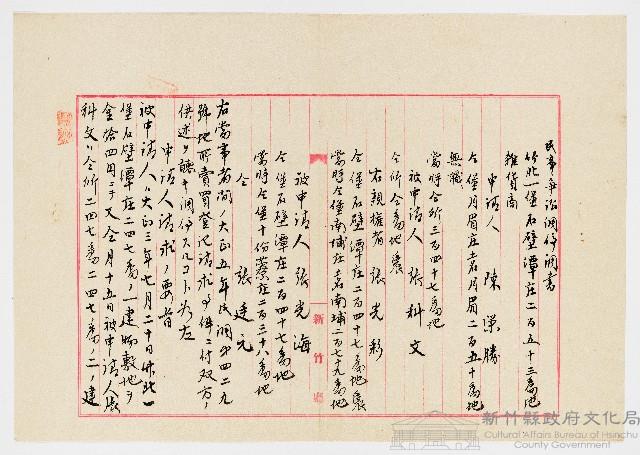 民事爭訟調停調書
竹北一堡石壁潭庄二百五十三番地
雜貨商
申請人 陳榮勝
仝堡月眉庄土名月眉二百五十番地
無職
當時仝所三百四十七番地
被申請人 張科文
仝所仝番地 農
右親權者 張光彩
仝堡石壁潭庄二百四十七番地 農
當時仝堡南埔庄土名南埔二百七十九番地
被申請人 張光海
仝堡石壁潭庄二百四十七番地
當時仝堡十份藔庄二百三十八番地
仝 張廷元
右當事者間ノ大正五年民調第四二九
號地所賣買登記請求事件ニ付双方ノ
供述ヲ聽キ調停スルコト如左
申請人請求ノ要旨
被申請人ハ大正三年七月二十日竹北一
堡石壁潭庄二四七番ノ一建物敷地ヲ
金拾四円ニテ又仝月十五日被申請人張
科文ハ仝所二四七番二四七番ノ二ノ建
新竹廳
新竹縣政府文化局
Cultural Affairs Bureau of Hsinchu
County Government